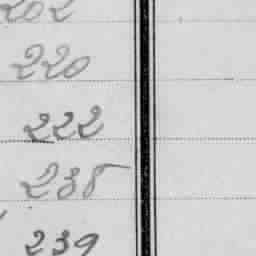 202
220
222
238
239